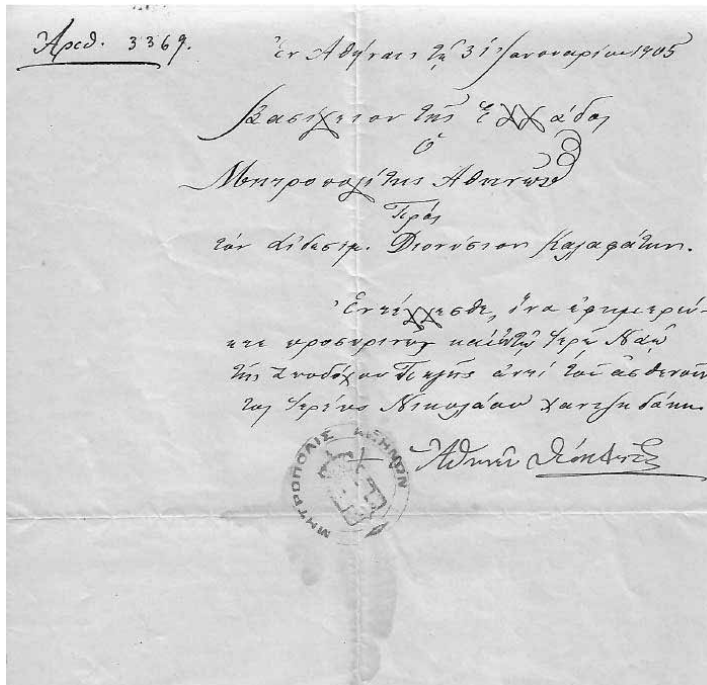 Ἀριθ. 3369.
Ἐν Ἀθήναις τῇ 31 Ἰανουαρίου 1905
Βασίλειον τῆς Ἑλλάδος
Ὁ
Μητροπολίτης Ἀθηνῶν
Πρὸς
τὸν Αἰδεσιμ. Διονύσιον Καλαφάτην.
Ἐντέλλεσθε, ἵνα ἐφημερεύη-
τε προσωρινῶς καὶ ἐν τῷ Ἱερῷ Ναῷ
τῆς Ζωοδόχου Πηγῆς ἀντὶ τοῦ ἀσθενοῦν
τος Ἱερέως Νικολάου
Ἀθηνῶν Θεόκλητος
ΜΗΤΡΟΠΟΛΙΣ ΑΘΗΝΩΝ